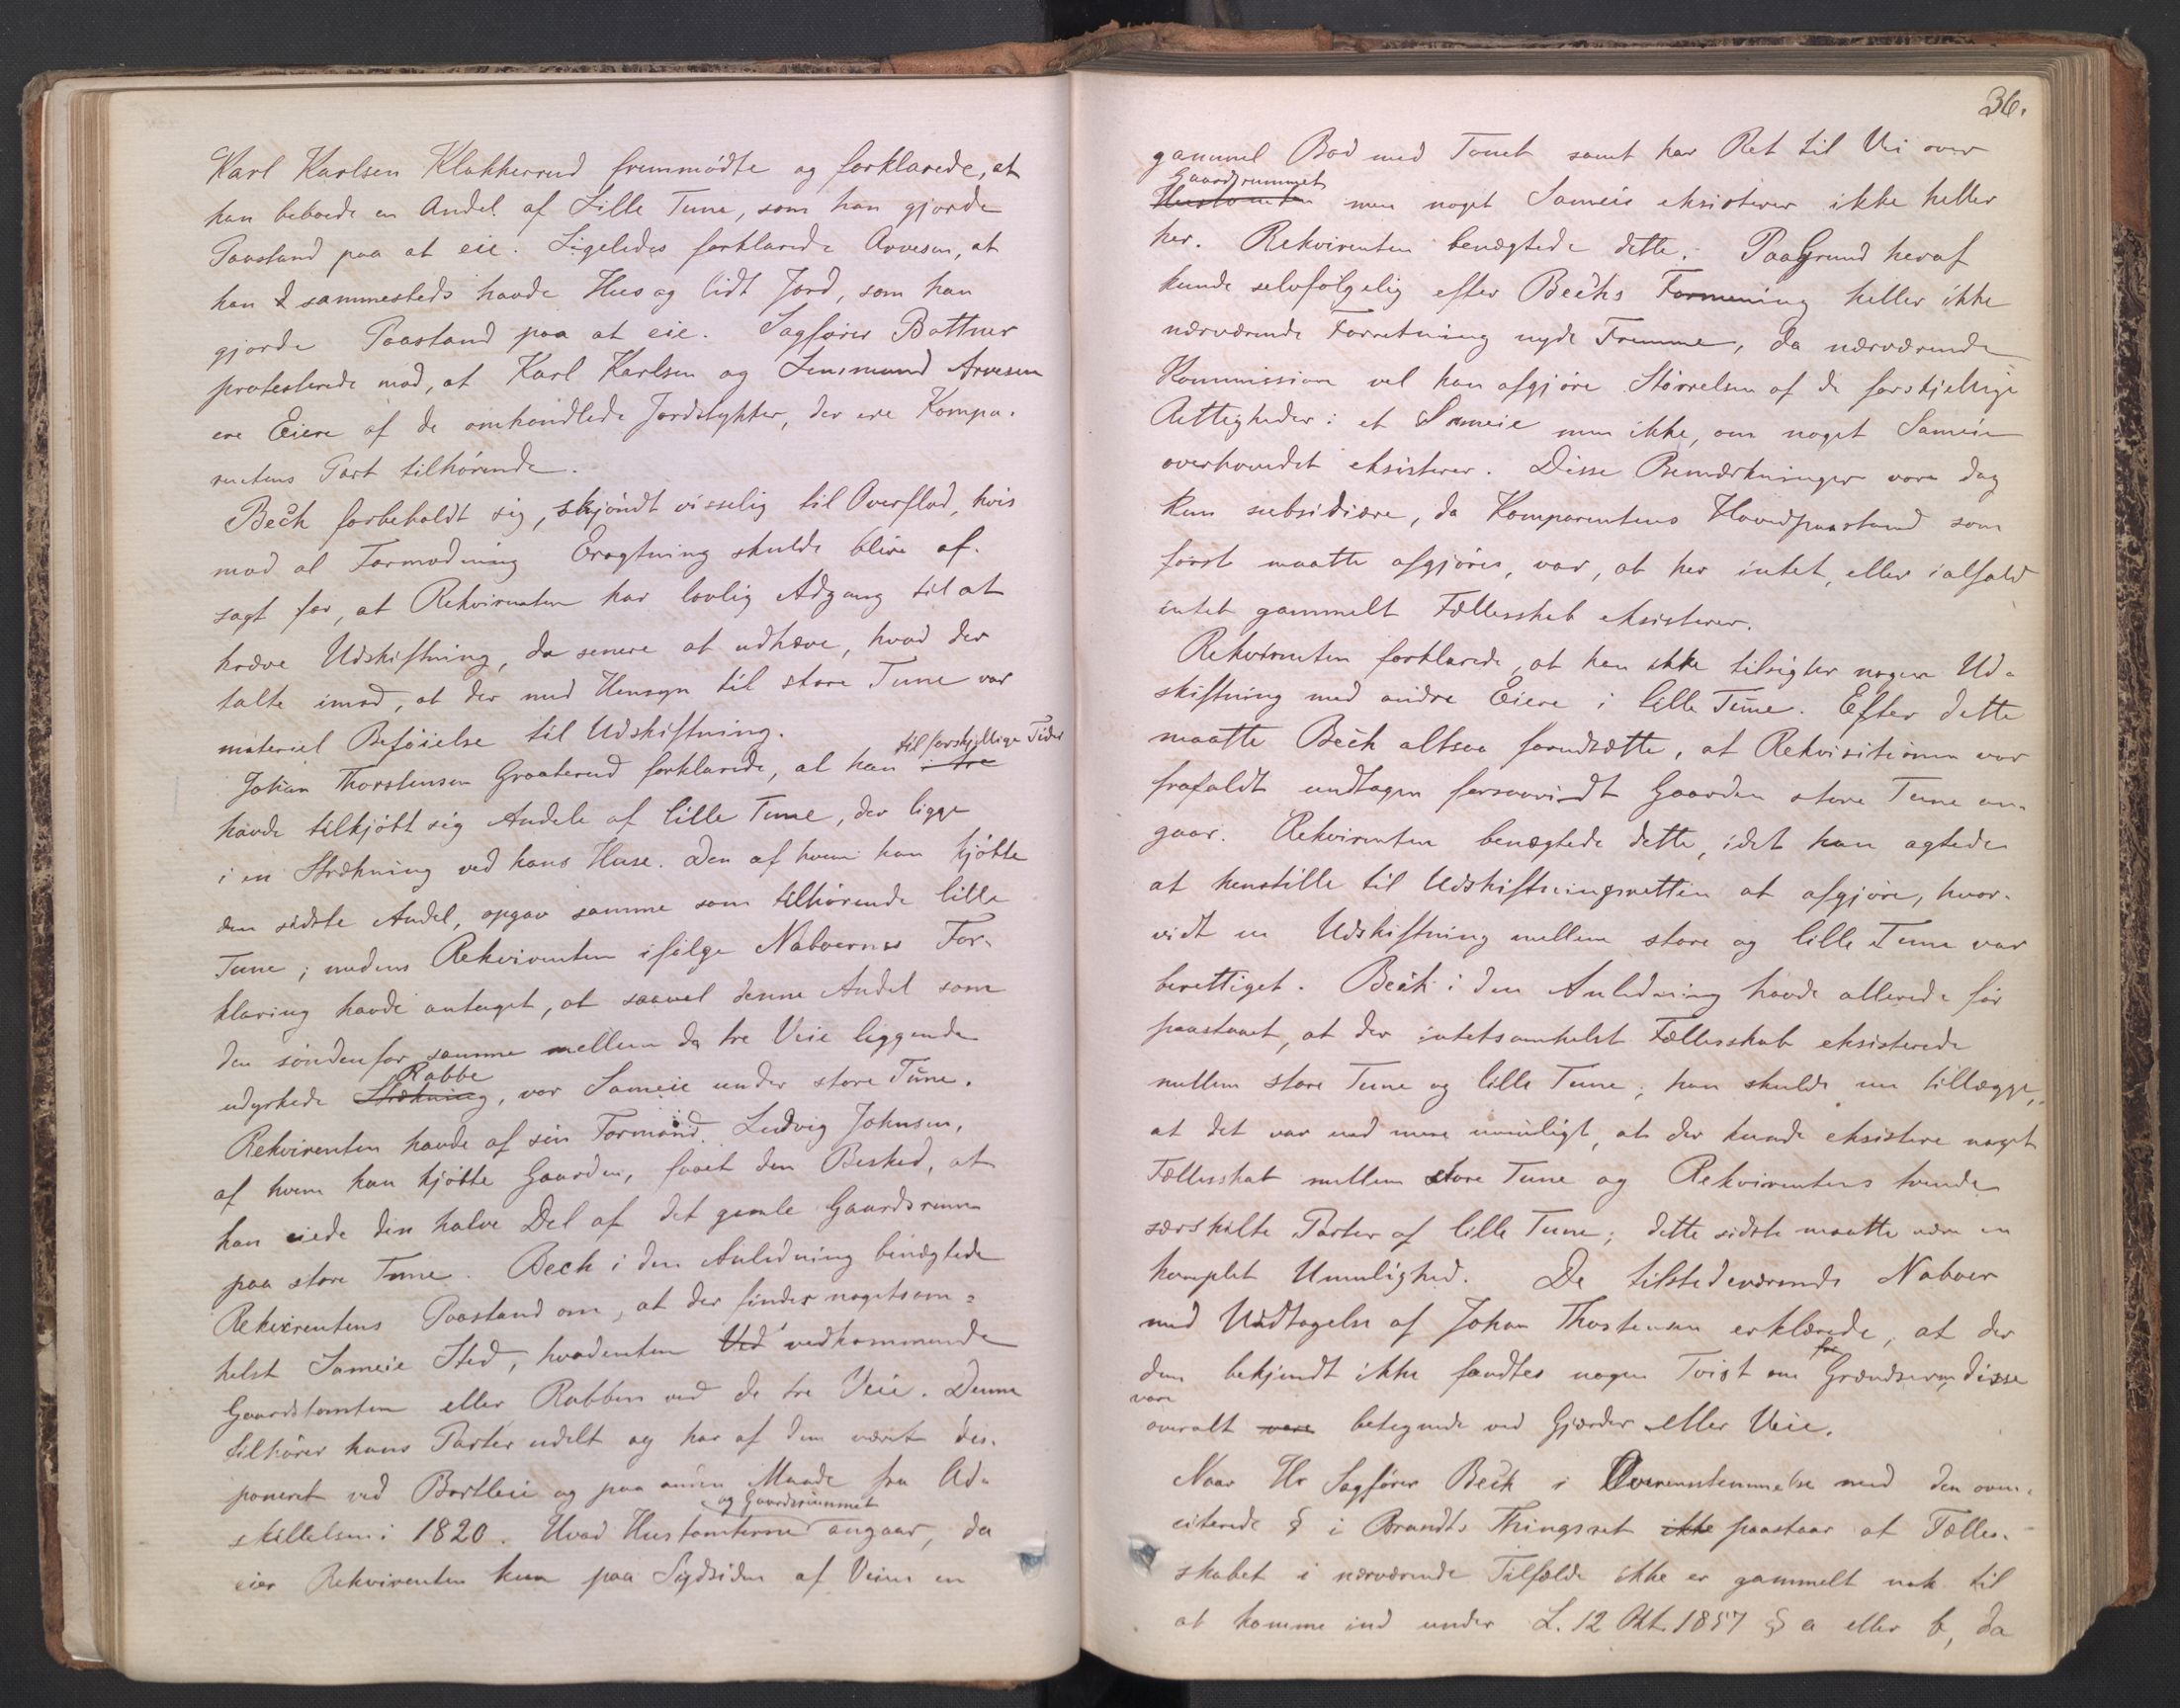 Karl Karlsen Klakkerud fremmødte og forklarede, at
han beboede en Andel af Lille Tune, som han gjorde
Paastand paa at eie. Ligeledes forklarede Arvesen, at
han sammesteds havde Hus og lidt Jord, som han
gjorde Paastand paa at eie. Sagfører Bøttner
protesterede mod, at Karl Karlsen og Arvesen
ere Eiere af de omhandlede Jordstykker, der ere Kompa-
rentens Part tilhørende.
Bech forbeholdt sig, skjøndt visselig til Overflod, hvis
mod al Formodning Eragtning skulde blive af-
sagt for, at Rekvirenten har lovlig Adgang til at
kræve Udskiftning, da senere at udhæve, hvad der
talte imod, at der med Hensyn til store Tune var
materiel Beføielse til Udskiftning.
til forskjellige Tider
Johan Thorstensen Graaterud forklarede, at han i tre
havde tilkjøbt sig Andele af lille Tune, der ligge
i en Strækning ved hans Huse. Den af hvem han kjøbte
den sidste Andel, opgav samme som tilhørende lille
Tune; medens Rekvirenten ifølge Naboernes For-
klaring havde antaget, at saavel denne Andel som
den søndenfor samme mellem de tre Veie liggende
Rabbe
udyrkede Strækning, var Sameie under store Tune.
Rekvirenten havde af sin Formand Ludvig Johnsen,
af hvem han kjøbte Gaarden, faaet den Besked, at
han eiede den halve Del af det gamle Gaardsrum
paa store Tune. Bech i den Anledning benægtede
Rekvirentens Paastand om, at der finder nogetsom-
helst Sameie Sted, hvadenten Ved vedkommende
Gaardstomten eller Rabben ved de tre Veie. Denne
tilhører hans Parter udelt og har af dem været dis-
poneret ved Bortleie og paa anden Maade fra Ad-
og Gaardsrummet
skillelsen i 1820. Hvad Hustomterne angaar, da
eier Rekvirenten kun paa Sydsiden af Veien en
36.
gammel Bod med Tomt samt har Ret til Vei over
Gaardsrummet
Hustomten men noget Sameie eksisterer ikke heller
her. Rekvirenten benægtede dette. Paa Grund heraf
kunde selvfølgelig efter Bechs Formening heller ikke
nærværende Forretning nyde Fremme, da nærværende
Kommission vel kan afgjøre Størrelsen af de forskjellige
Rettigheder i et Sameie men ikke, om noget Sameie
overhovedet eksisterer. Disse Bemærkninger vare dog
kun subsidiære, da Komparentens Hovedpaastand som
først maatte afgjøres, var, at her intet, eller ialfald
intet gammelt Fællesskab eksisterer.
Rekvirenten forklarede, at han ikke tilsigter nogen Ud-
skiftning med andre Eiere i lille Tune. Efter dette
maatte Bech altsaa forudsætte, at Rekvisitionen var
frafaldt undtagen forsaavidt Gaarden store Tune an-
gaar. Rekvirenten benægtede dette, idet han agtede
at henstille til Udskiftningsretten at afgjøre, hvor-
vidt en Udskiftning mellem store og lille Tune var
berettiget. Bech i den Anledning havde allerede før
paastaaet, at der intetsomhelst Fællesskab eksisterede
mellem store Tune og lille Tune; han skulde nu tillægge,
at det var end mere umuligt, at der kunde eksistere noget
Fællesskab mellem store Tune og Rekvirentens tvende
særskilte Parter af lille Tune; dette sidste maatte være en
komplet Umulighed. De tilstedeværende Naboer
med Undtagelse af Johan Thorstensen erklærede, at der
dem bekjendt ikke fandtes nogen Tvist om Grændserne, disse
vare
overalt vare betegnede ved Gjærder eller Veie.
Naar Hr Sagfører Bech i Overensstemmelse med den oven-
citerede § i Brandts Thingsret ikke paastaar at Fælles-
skabet i nærværende Tilfælde ikke er gammelt nok til
at komme ind under L. 12 Okt. 1857 § a eller b, da